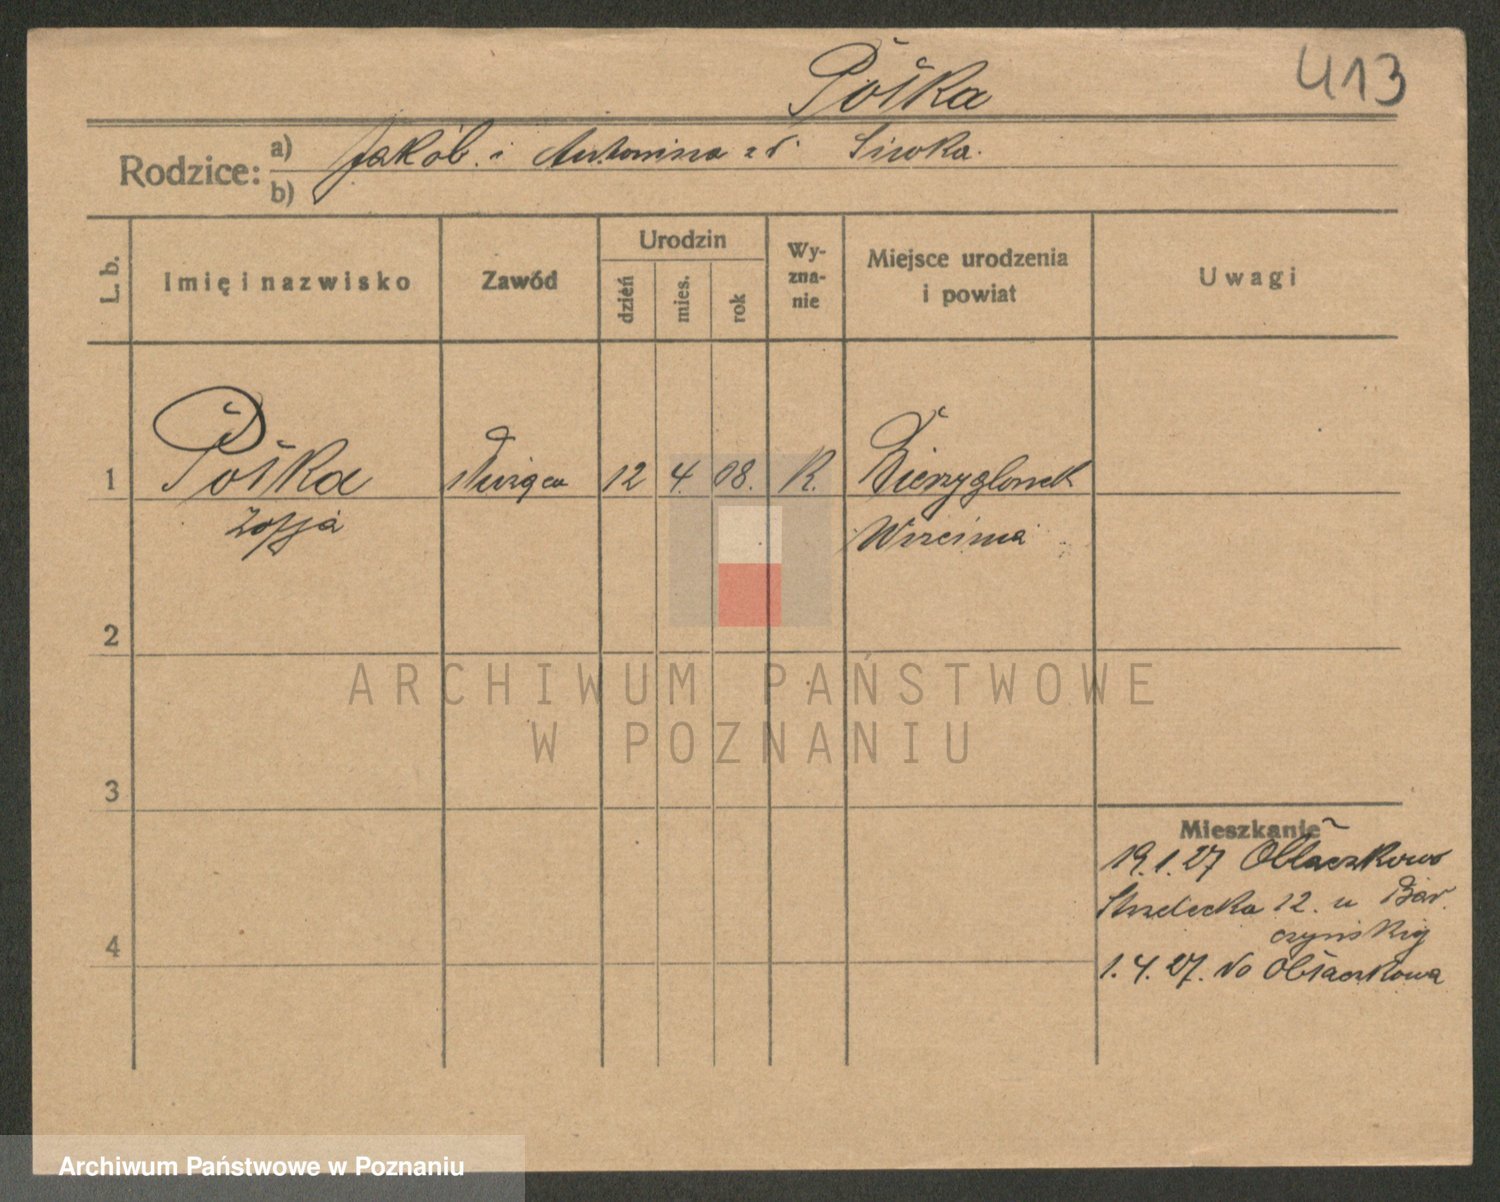 413
Pośka
Rodzice: a) Jakób i Antonina z d. Siwka.
b)
L. b. Imię i nazwisko Zawód Urodzin dzień mies. rok Wyznanie Miejsce urodzenia i powiat Uwagi
1 Pośka 12 4. 08. R.
Zofja Września
2
3
4
Mieszkanie
19.1.27 Obłaczkowo
Strzelecka 12. u Bar
czyńskiej
1.4.27. do Obłaczkowa
ARCHIWUM PAŃSTWOWE
W POZNANIU
Archiwum Państwowe w Poznaniu